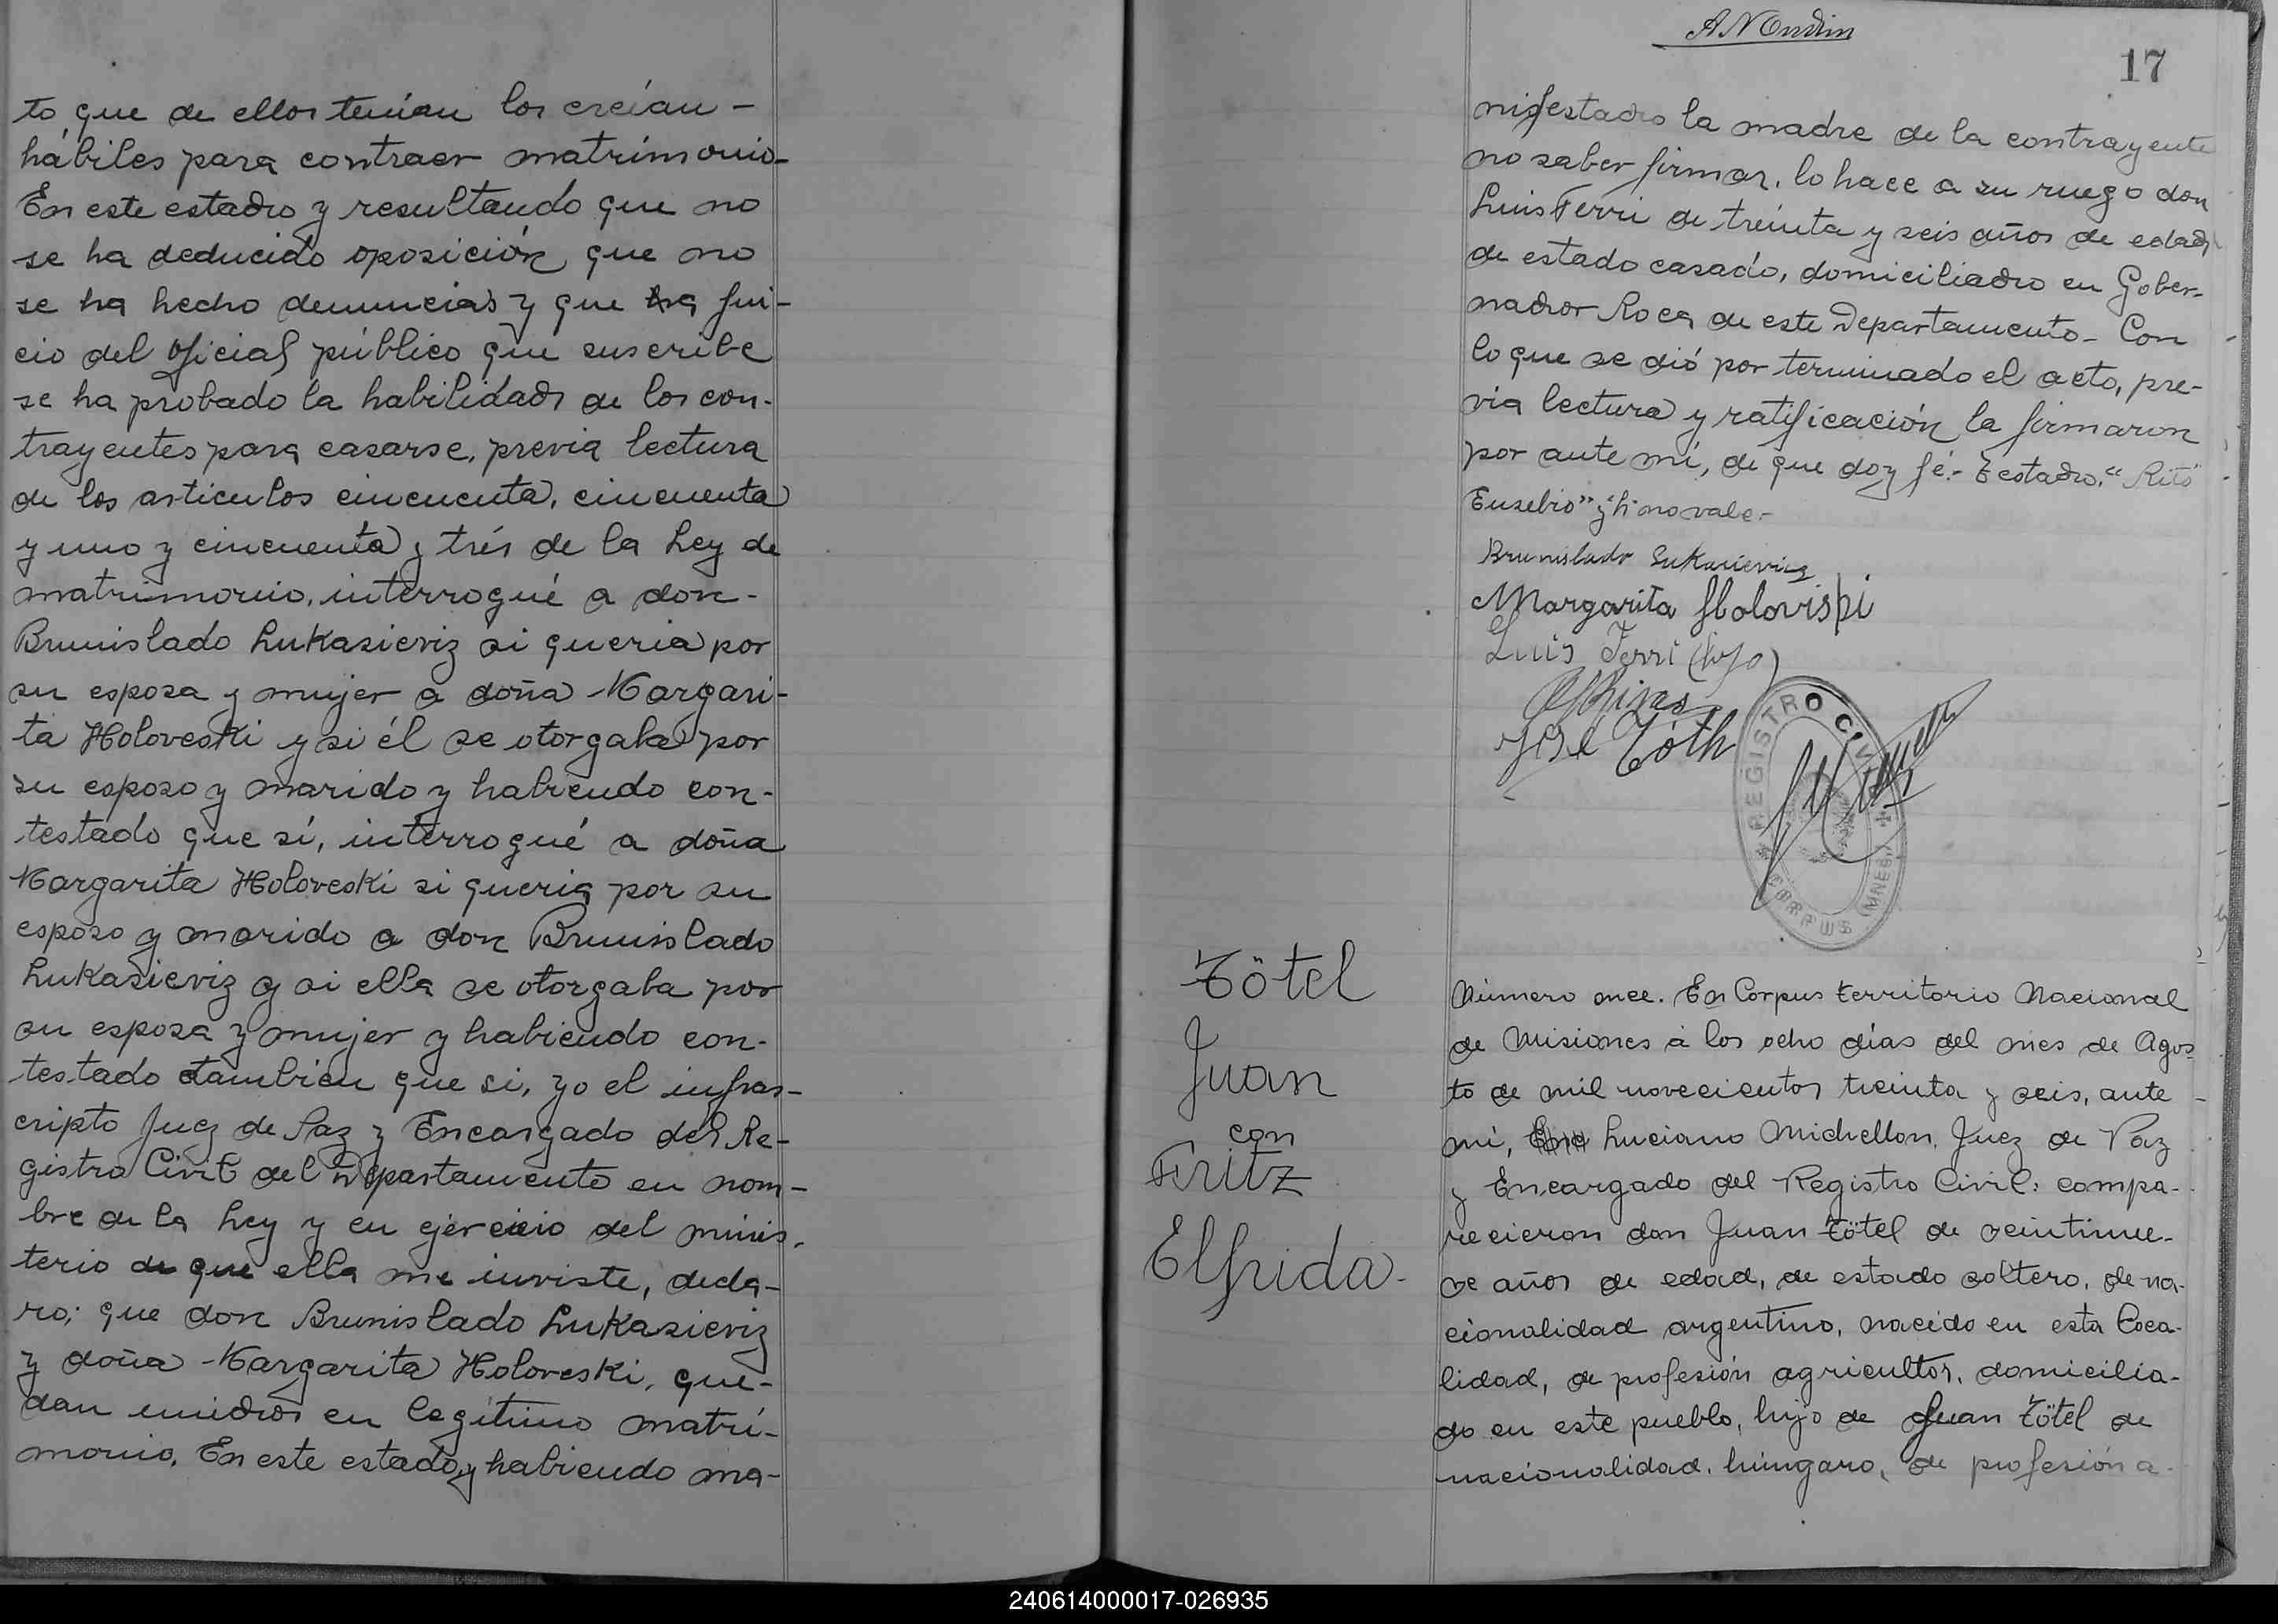 to que de ellos tenían los creían -
hábiles para contraer matrimonio-
En este estado y resultando que no
se ha deducido oposición que no
se ha hecho denuncias y que a jui-
cio del oficial público que suscribe
se ha probado la habilidad de los con-
trayentes para casarse, previa lectura
de los artículos cincuenta, cincuenta
y uno y cincuenta y trés de la Ley de
matrimonio, interrogué a don-
Brunislado Lukasieviz si queria por
su esposa y mujer a doña Margari-
ta Holoveski y si él se otorgaba por
su esposo y marido y habiendo con-
testado que sí, interrogué a doña
Margarita Holoveski si queria por su
esposo y marido a don Brunislado
Lukasieviz y si ella se otorgaba por
su esposa y mujer y habiendo con-
testado tambien que si, yo el infras-
cripto Juez de Paz y Encargado del Re-
gistro Civil del Departamento en nom-
bre de la Ley y en ejercicio del minis-
terio de que ella me inviste, decla-
ro; que don Brunislado Lukasieviz
y doña Margarita Holoveski, que-
dan unidos en legítimo matri-
monio. En este estado y habiendo ma-
17
nifestado la madre de la contrayente
no saber firmar, lo hace a su ruego don
Luis Ferri de treinta y seis años de edad,
de estado casado, domiciliado en Gober-
nador Roca de este Departamento- Con
lo que se dió por terminado el acto, pre-
via lectura y ratificación la firmaron
por ante mí, de que doy fé.- Testado: "Rito
Eusebio" y "h" no vale.-
Brunislado Lukasieviz
Margarita Holoviski
Luis Ferri (hijo)
José Tóth
REGISTRO CIVIL
CORPUS (MNES)
Tötel
Juan
con
Fritz
Elfrida-
Número once. En Corpus territorio Nacional
de Misiones á los ocho días del mes de Agos-
to de mil novecientos treinta y seis, ante
mí, Luciano Michellon, Juez de Paz
y Encargado del Registro Civil: compa-
recieron don Juan Tötel de veintinue-
ve años de edad, de estado soltero, de na-
cionalidad argentino, nacido en esta loca-
lidad, de profesión agricultor, domicilia-
do en este pueblo, hijo de Juan Tötel de
nacionalidad húngaro, de profesión a-
240614000017-026935